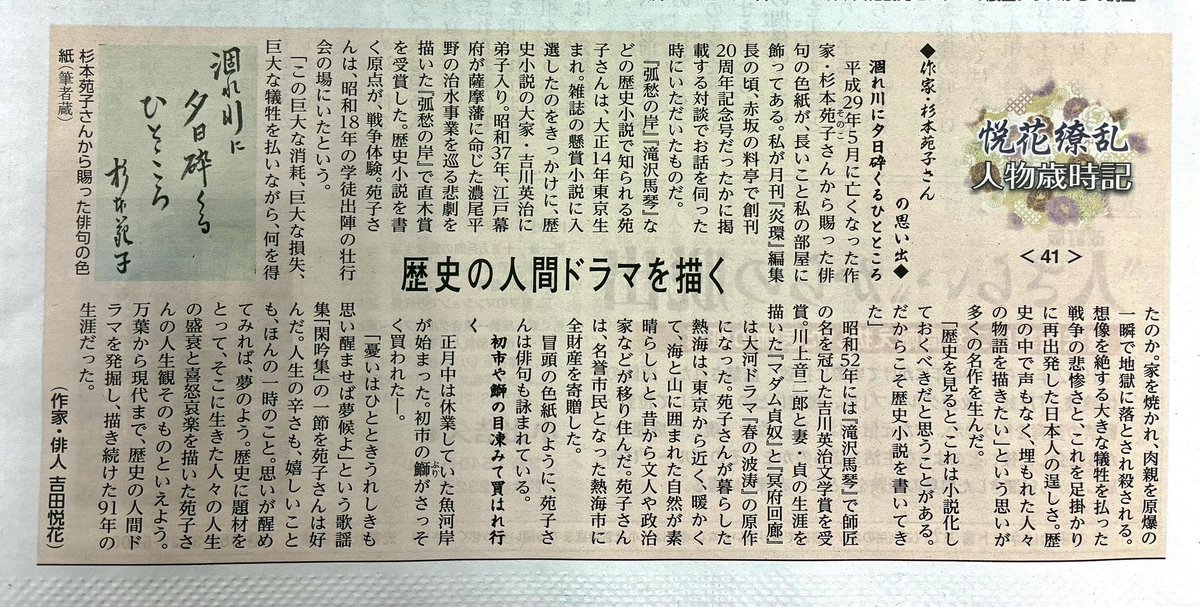 悦花繚乱
人物歳時記
<41>
◆作家・杉本苑子さん
の思い出◆
涸れ川に夕日砕くるひとところ
平成29年5月に亡くなった作
家・杉本苑子さんから賜った俳
句の色紙が、長いこと私の部屋に
飾ってある。私が月刊『炎環』編集
長の頃、赤坂の料亭で創刊
20周年記念号だったかに掲
載する対談でお話を伺った
時にいただいたものだ。
『孤愁の岸』『滝沢馬琴』な
どの歴史小説で知られる苑
子さんは、大正14年東京生
まれ。雑誌の懸賞小説に入
選したのをきっかけに、歴
史小説の大家・吉川英治に
弟子入り。昭和37年、江戸幕
府が薩摩藩に命じた濃尾平
野の治水事業を巡る悲劇を
描いた『孤愁の岸』で直木賞
を受賞した。歴史小説を書
く原点が、戦争体験。苑子さ
んは、昭和18年の学徒出陣の壮行
会の場にいたという。
「この巨大な消耗、巨大な損失、
巨大な犠牲を払いながら、何を得
涸れ川に
夕日砕くる
ひとところ
杉本苑子
杉本苑子さんから賜った俳句の色
紙(筆者蔵)
歴史の人間ドラマを描く
たのか。家を焼かれ、肉親を原爆の
一瞬で地獄に落とされ殺される。
想像を絶する大きな犠牲を払った
戦争の悲惨さと、これを足掛かり
に再出発した日本人の逞しさ。歴
史の中で声もなく、埋もれた人々
の物語を描きたい」という思いが
多くの名作を生んだ。
「歴史を見ると、これは小説化し
ておくべきだと思うことがある。
だからこそ歴史小説を書いてき
た」
昭和52年には『滝沢馬琴』で師匠
の名を冠した吉川英治文学賞を受
賞。川上音二郎と妻・貞の生涯を
描いた『マダム貞奴』と『冥府回廊』
は大河ドラマ「春の波涛」の原作
になった。苑子さんが暮らした
熱海は、東京から近く、暖かく
て、海と山に囲まれた自然が素
晴らしいと、昔から文人や政治
家などが移り住んだ。苑子さん
は、名誉市民となった熱海市に
全財産を寄贈した。
冒頭の色紙のように、苑子さ
んは俳句も詠まれている。
初市や鰤の目凍みて買はれ行
く
正月中は休業していた魚河岸
が始まった。初市の鰤がさっそ
く買われた―。
「憂いはひとときうれしきも
思い醒ませば夢候よ」という歌謡
集「閑吟集」の一節を苑子さんは好
んだ。人生の辛さも、嬉しいこと
も、ほんの一時のこと。思いが醒め
てみれば、夢のよう。歴史に題材を
とって、そこに生きた人々の人生
の盛衰と喜怒哀楽を描いた苑子さ
んの人生観そのものといえよう。
万葉から現代まで、歴史の人間ド
ラマを発掘し、描き続けた91年の
生涯だった。
(作家・俳人 吉田悦花)